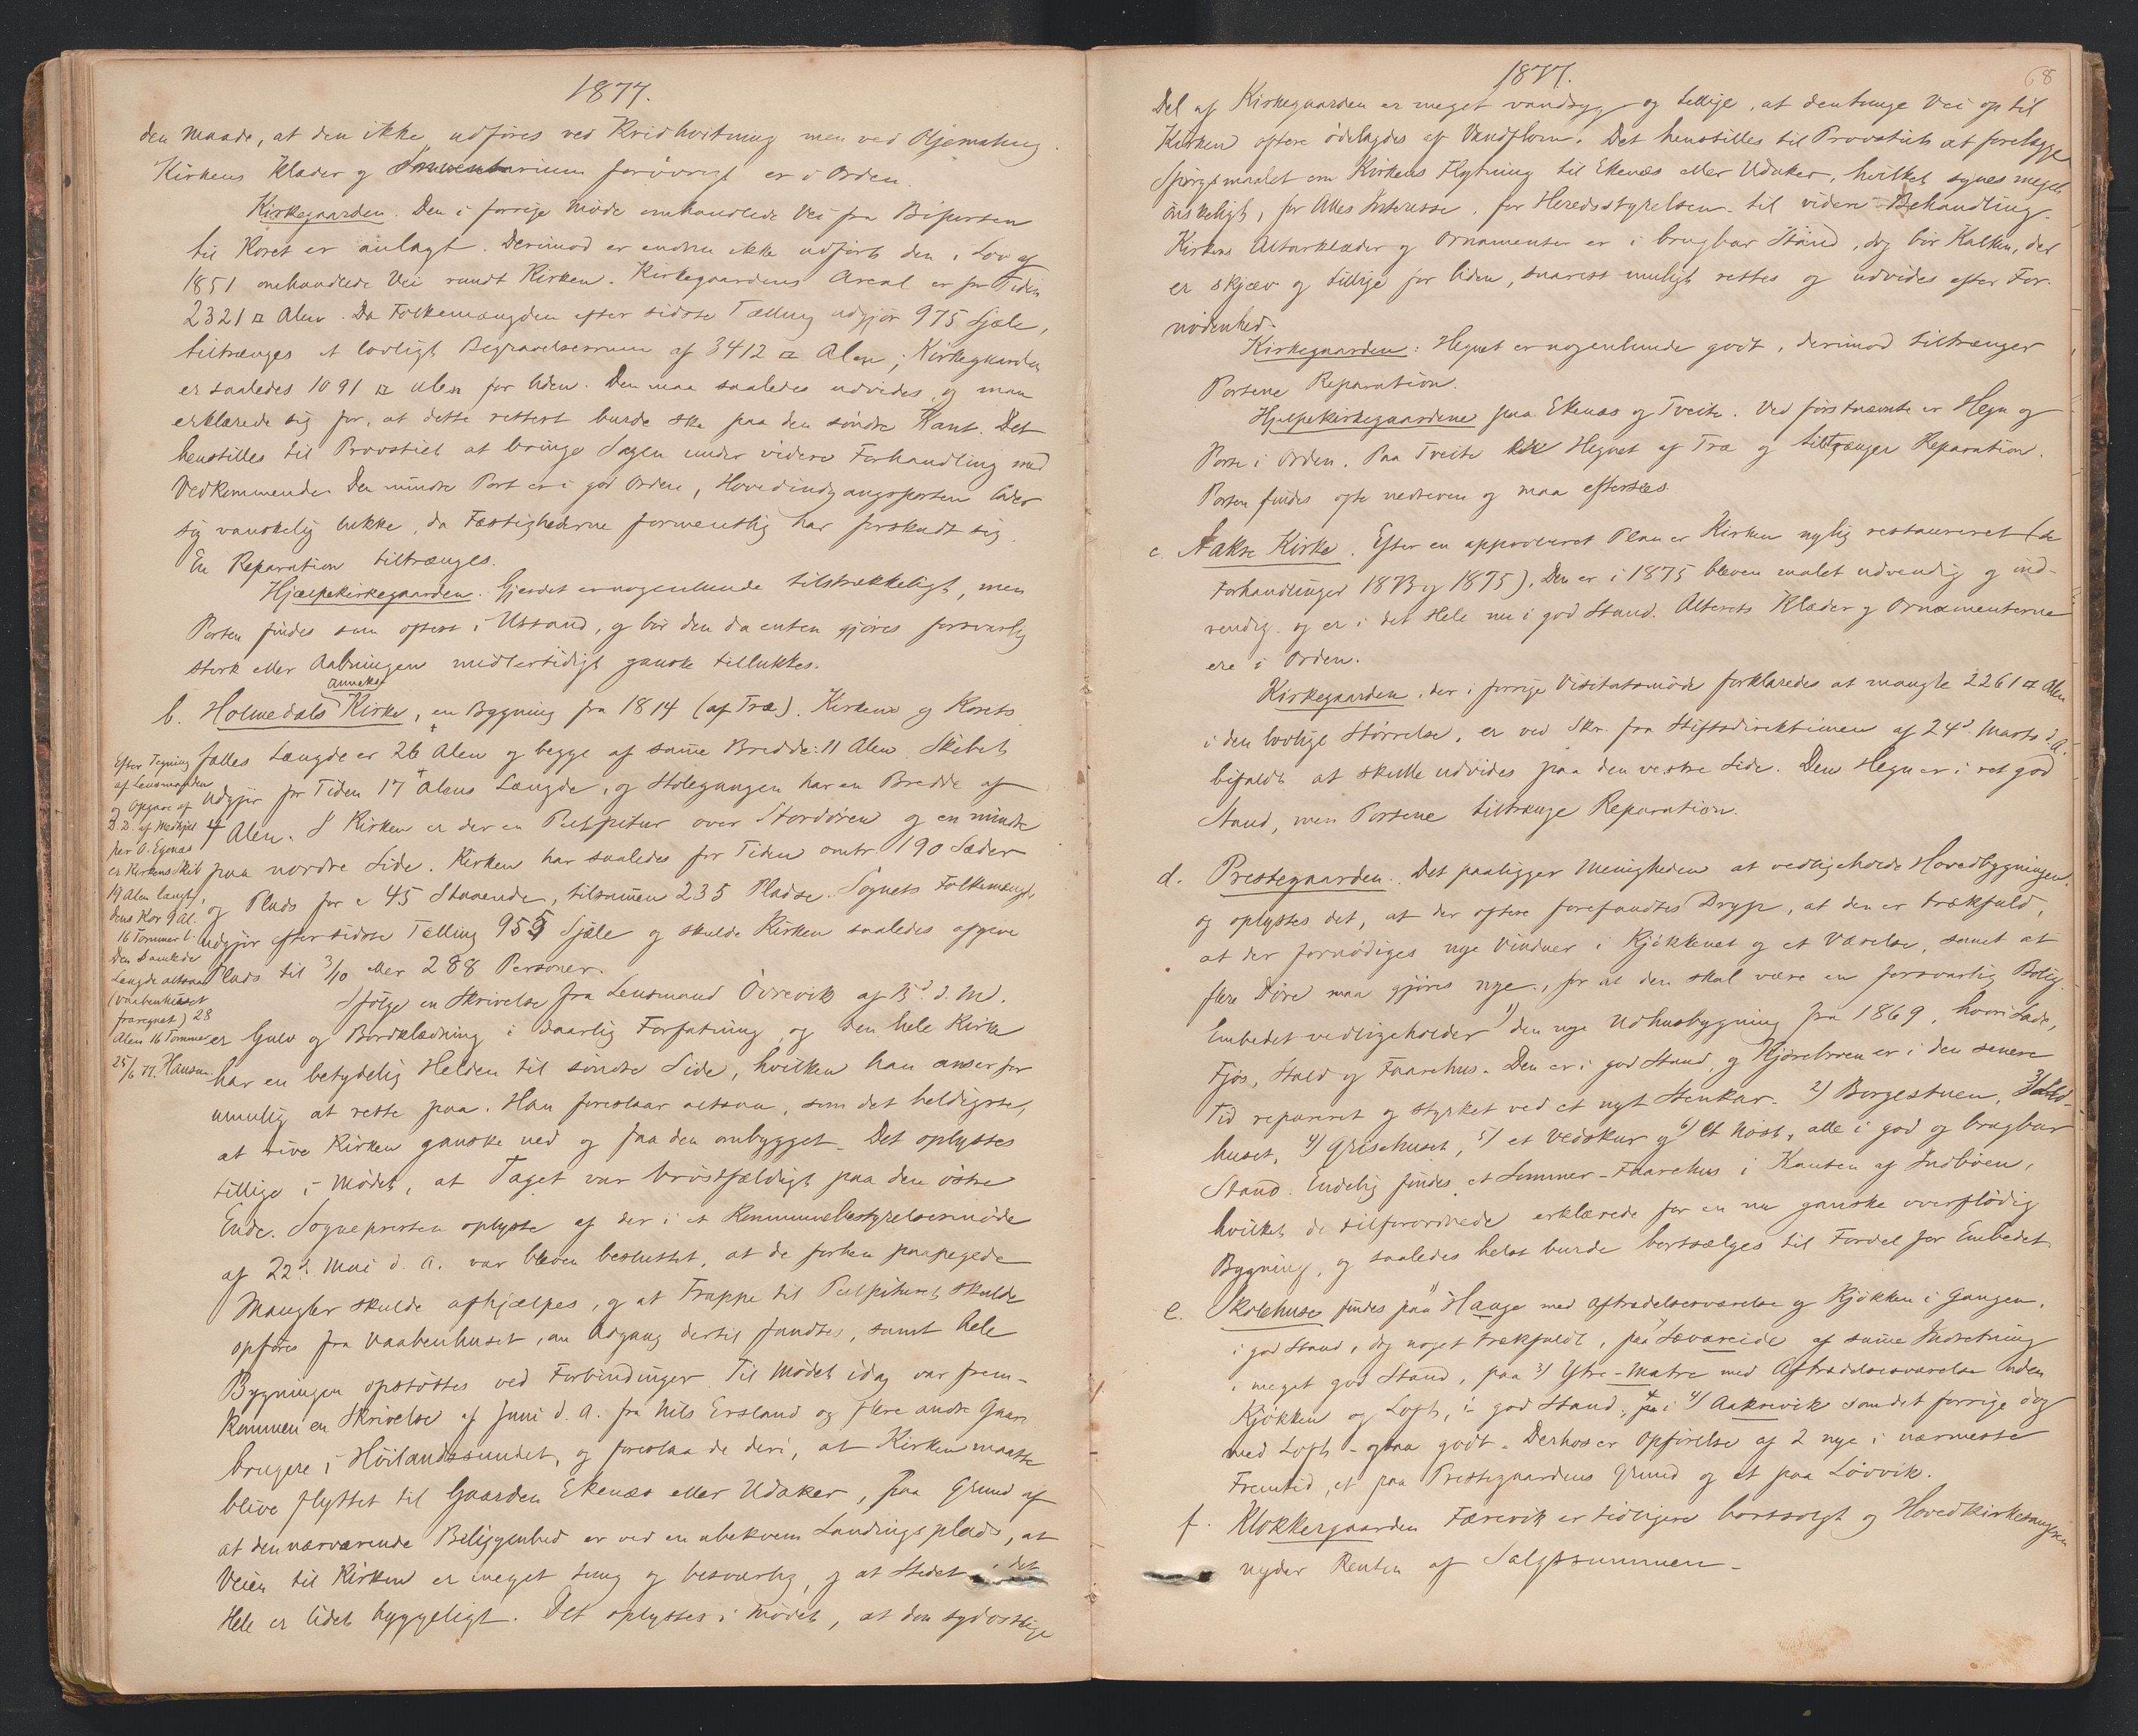 1877.
den Maade, at den ikke udføres ved Kridhvitning men ved Oljemaling.
Kirkens Klæder og Inventarium forøvrigt er i Orden.
Kirkegaarden. Den i forrige Møde omhandlede Vei fra Biporten
til Koret er anlagt. Derimod er endnu ikke udført den i Lov af
1851 omhandlede Vei rundt Kirken. Kirkegaardens Areal er for Tiden
2321 □ Alen. Da Folkemængden efter sidste Tælling udgjør 975 Sjæle,
tiltrænges et lovligt Begravelsesrum af 3412 □ Alen; Kirkegaarden
er saaledes 1091 □ Alen for liden. Den maa saaledes udvides, og man
erklærede sig for, at dette rettest burde ske paa den søndre Kant. Det
henstilles til Provstiet at bringe Sagen under videre Forhandling med
Vedkommende. Den mindre Port er i god Orden, Hovedindgangsporten lader
sig vanskelig lukke, da Fæstighederne formentlig har forskudt sig.
En Reparation tiltrænges.
Hjælpekirkegaarden. Gjerdet er nogenlunde tilstrækkeligt, men
Porten findes som oftest i Ustand, og bør den da enten gjøres forsvarlig
sterk eller Aabningen midlertidigt ganske tillukkes.
Anneks
b. Holmedals Kirke, en Bygning fra 1814 (af Træ). Kirkens og Korets
fælles Længde er 26 Alen og begge af samme Bredde: 11 Alen. Skibets
udgjør for Tiden 17 Alens Længde, og Stolegangen har en Bredde af
4 Alen. I Kirken er der en Pulpitur over Stordøren og en mindre
paa nordre Side. Kirken har saaledes for Tiden omtr. 190 Sæder
og Plads for c 45 Staaende, tilsammen 235 Pladse. Sognets Folkemængde
udgjør efter sidste Tælling 955 Sjæle og skulde Kirken saaledes afgive
Plads til 3/10 eller 288 Personer.
Efter Tegning
af Lensmanden
og Opgave af
D. D. af Medhjel
per A. Egenæs
er Kirkens Skib
19 Alen langt,
dens Kor 9 Al.
16 Tommer l.
Den samlede
Længde altsaa
(Vaabenhuset
fraregnet) 28
Alen 16 Tommer
25/6 77. Hansen
Ifølge en Skrivelse fra Lensmand Øvrevik af 15d d. M.
er Gulv og Bordklædning i daarlig Forfatning, og den hele Kirke
har en betydelig Helden til søndre Side, hvilken han anser for
umulig at rette paa. Han foreslaar altsaa, som det heldigste,
at rive Kirken ganske ned og faa den ombygget. Det oplystes
tillige i Mødet, at Taget var brøstfældigt paa den østre
Ende. Sognepresten oplyste af der i et Kommunebestyrelsesmøde
af 22d Mai d. A. var bleven besluttet, at de forhen paapegede
Mangler skulde afhjælpes, og at Trappe til Pulpituret skulde
opføres fra Vaabenhuset, om Adgang dertil fandtes, samt hele
Bygningen opstøttes ved Forbindinger. Til Mødet idag var frem-
kommen en Skrivelse af Juni d. A. fra Nils Ersland og flere andre Gaard
brugere i Høilandssundet, og foreslaa de deri, at Kirken maatte
blive flyttet til Gaarden Ekenæs eller Udaker, paa Grund af
at den nærværende Beliggenhed er ved en ubekvem Landingsplads, at
Veien til Kirken er meget tung og besværlig, og at Stedet i det
Hele er lidet hyggeligt. Det oplystes i Mødet, at den sydøstlige
1877.
68
Del af Kirkegaarden er meget vandsyg og tillige, at den tunge Vei op til
Kirken oftere ødelagdes af Vandflom. Det henstilles til Provstiet at forelægge
Spørgsmaalet om Kirkens Flytning til Ekenæs eller Udaker, hvilket synes meget
ønskeligt, for Alles Interesse, for Heredsstyrelsen til videre Behandling.
Kirkens Alterklæder og Ornamenter er i brugbar Stand, dog bør Kalken, der
er skjæv og tillige for liden, snarest muligt rettes og udvides efter For-
nødenhed.
Kirkegaarden: Hegnet er nogenlunde godt, derimod tiltrænger
Portene Reparation.
Hjelpekirkegaardene paa Ekenæs og Tveite. Ved førstnævnte er Hegn og
Port i Orden. Paa Tveite er Hegnet af Træ og tiltrænger Reparation.
Porten findes ofte nedreven og maa eftersees.
c. Aakre Kirke. Efter en approberet Plan er Kirken nylig restaureret (se
Forhandlinger 1873 og 1875). Den er i 1875 bleven malet udvendig og ind-
vendig og er i det Hele nu i god Stand. Alterets Klæder og Ornamenterne
ere i Orden.
Kirkegaarden, der i forrige Visitatsmøde forklaredes at mangle 2261 □ Alen
i den lovlige Størrelse, er ved Skr. fra Stiftsdirektionen af 24d Marts d. A.
bifaldt at skulle udvides paa den vestre Side. Dens Hegn er i ret god
Stand, men Portene tiltrænge Reparation.
d. Prestegaarden. Det paaligger Menigheden at vedligeholde Hovedbygningen,
og oplystes det, at der oftere forefandtes Dryp, at den er trækfuld,
at der fornødiges nye Vinduer i Kjøkkenet og et Værelse, samt at
flere Døre maa gjøres nye, for at den skal være en forsvarlig Bolig.
Embedet vedligeholder 1) den nye Udhusbygning fra 1869, hvori Lade,
Fjøs, Stald og Faarehus. Den er i god Stand, og Kjørebroen er i den senere
Tid repareret og styrket ved et nyt Stenkar. 2) Borgestuen, 3) Ild-
huset, 4) Grisehuset, 5) et Vedskur og 6) et Nøst, alle i god og brugbar
Stand. Endelig findes et Sommer-Faarehus i Kanten af Indbøen,
hvilket de tilforordnede erklærede for en nu ganske overflødig
Bygning, og saaledes helst burde bortsælges til Fordel for Embedet.
e. Skolehuse findes paa 1) Hauge med Aftrædelsesværelse og Kjøkken i Gangen,
i god Stand, dog noget trækfuldt, paa 2) Sævareide af samme Indretning
i meget god Stand, paa 3) Ytre-Matre med Aftrædelsesværelse uden
Kjøkken og Loft, i god Stand, i 4) Aakrevik som det forrige dog
med Loft - ogsaa godt. Derhos er Opførelse af 2 nye i nærmeste
Fremtid, et paa Prestegaardens Grund og et paa Løvvik.
f. Klokkergaarden Færevik er tidligere bortsolgt og Hovedkirkesangeren
nyder Renten af Salgssummen.-